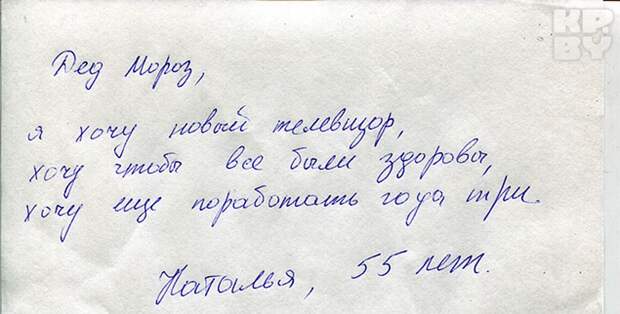 KP.
BY
Дед Мороз,
я хочу новый телевизор,
хочу чтобы все были здоровы,
хочу еще поработать года три.
Наталья, 55 лет.